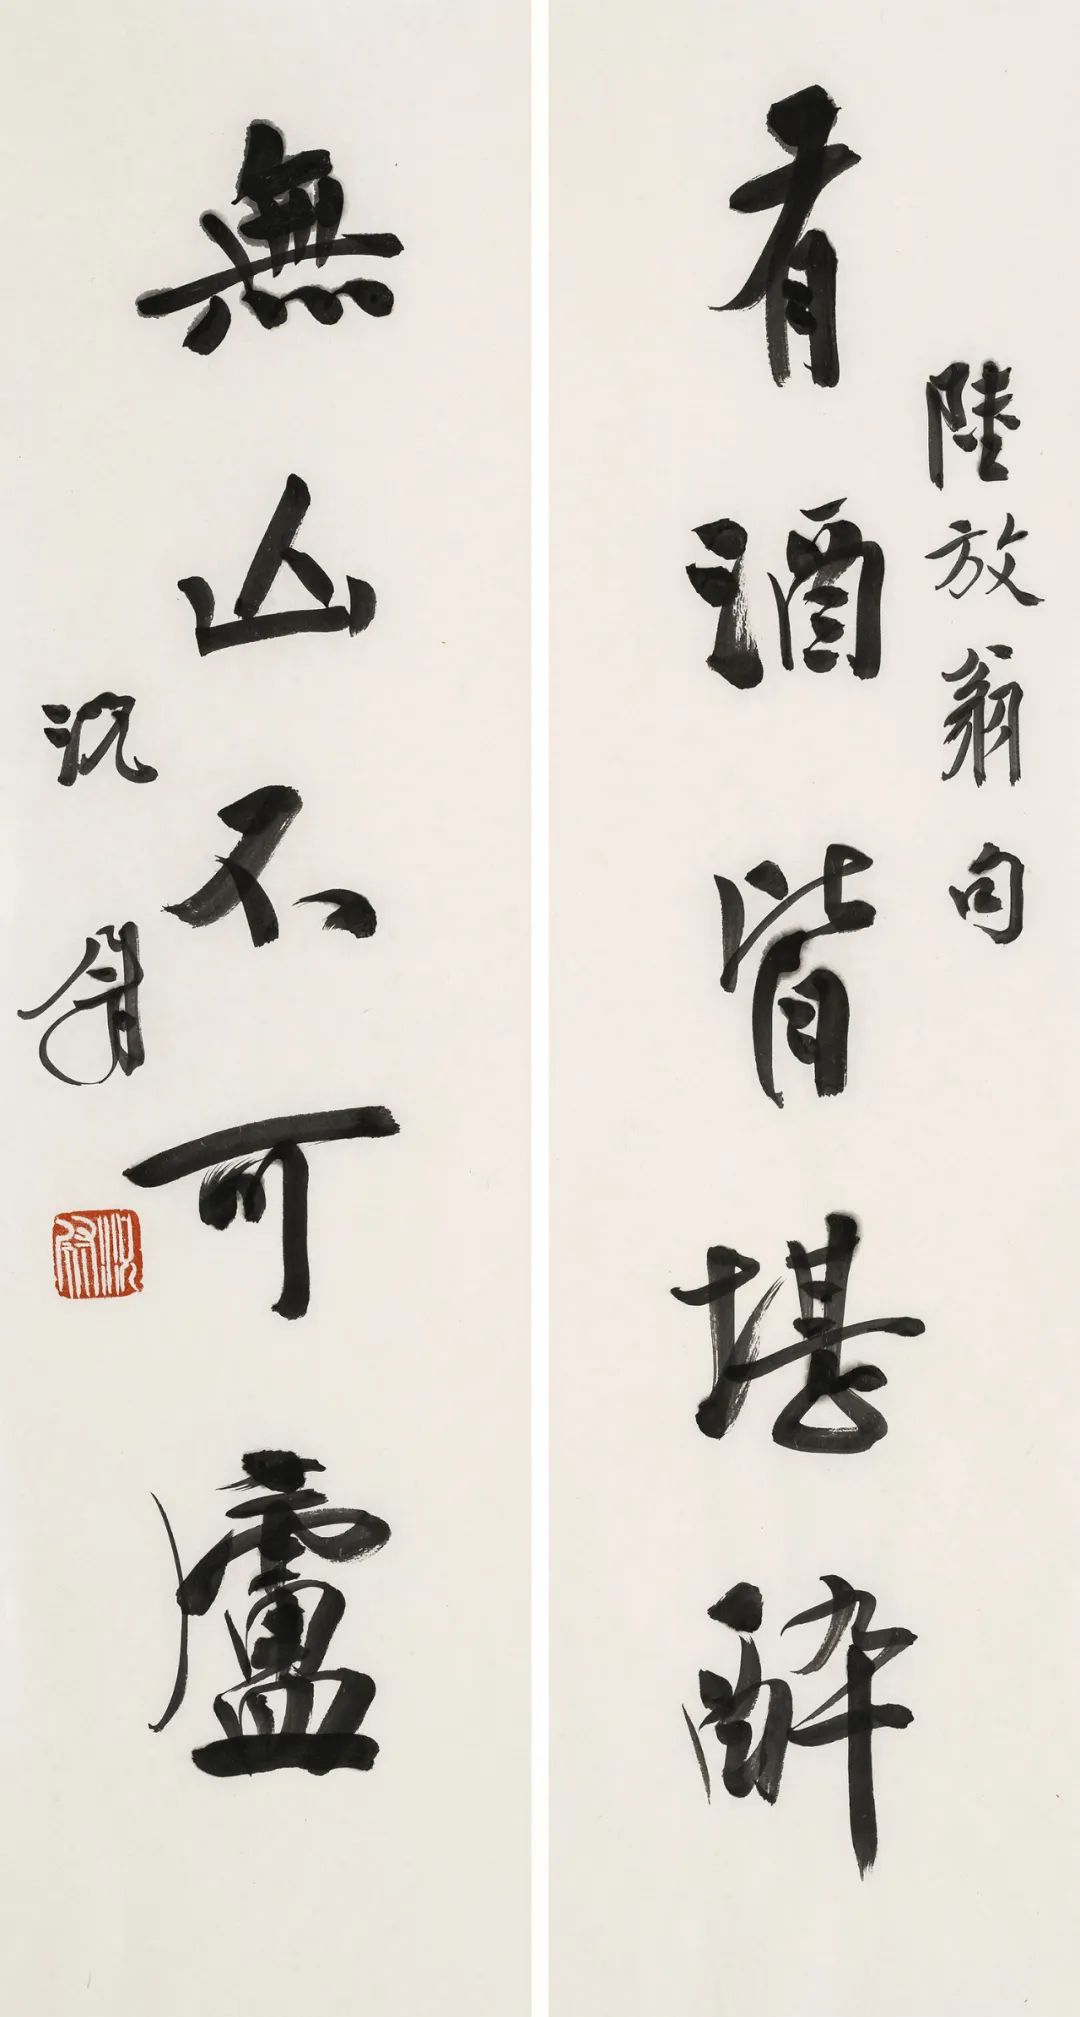 陸放翁句
有酒皆堪醉
無山不可廬
沈